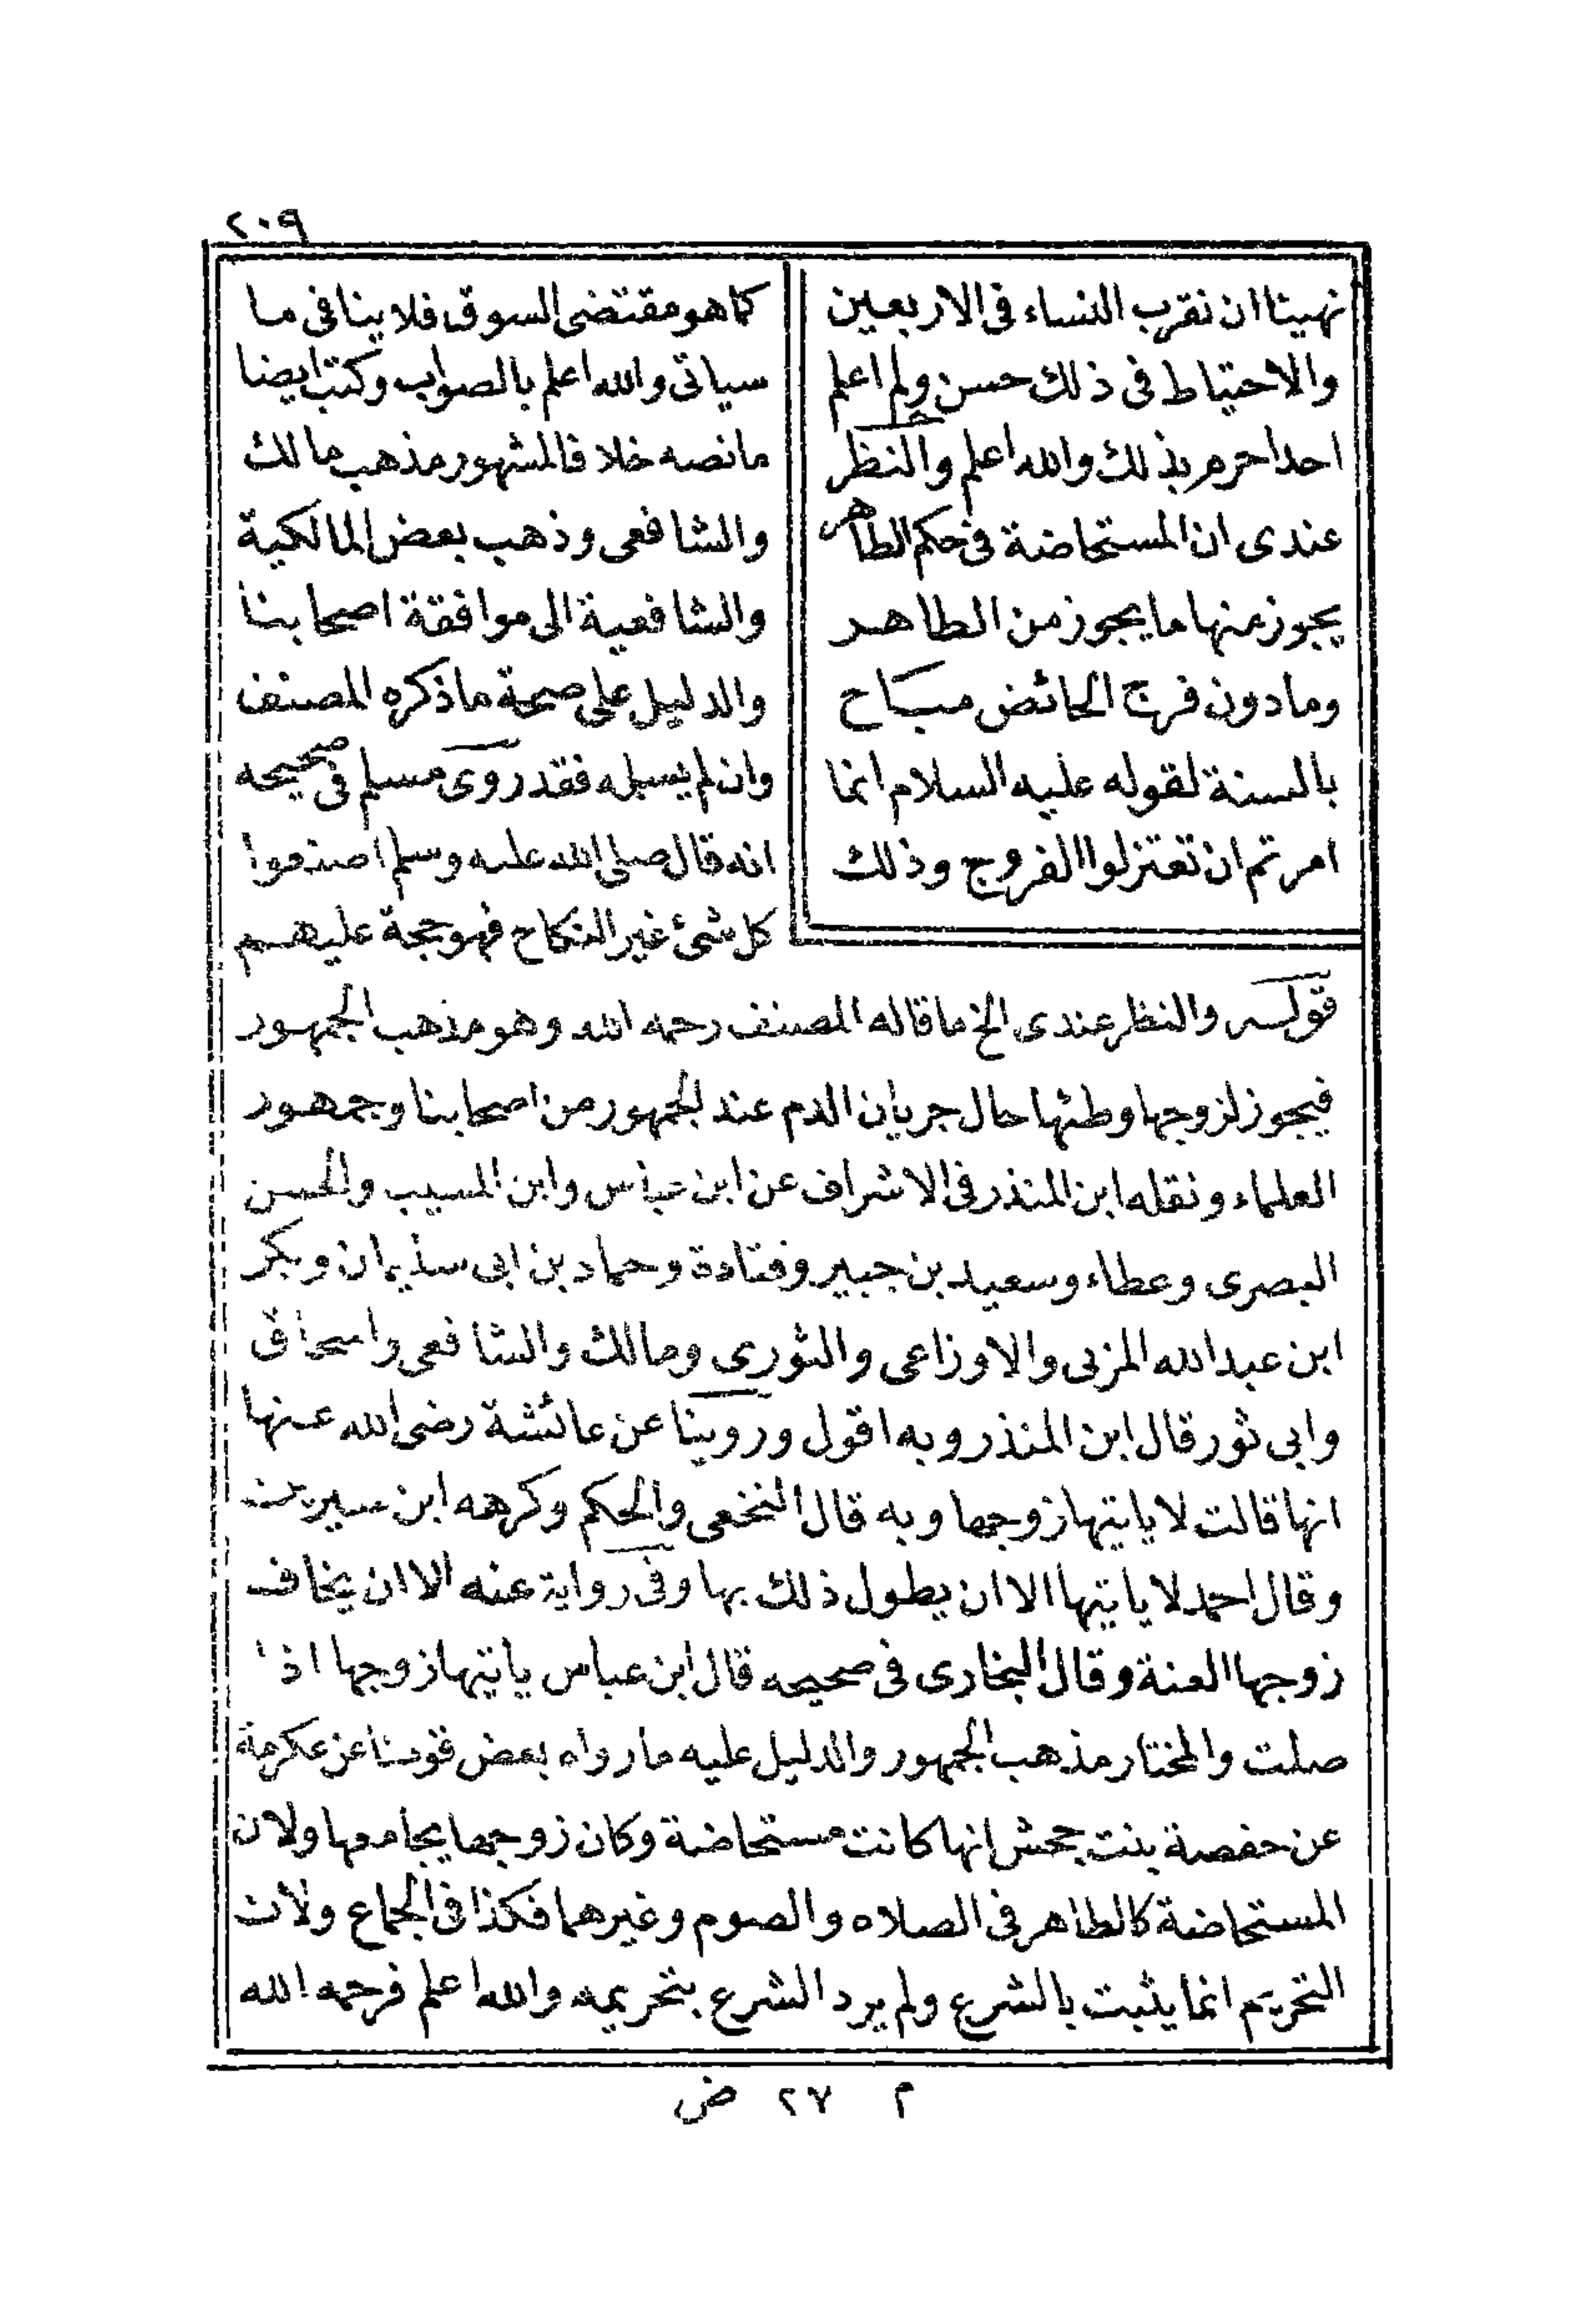 ٢٠٩
نهينا ان نقرب النساء فى الاربعين
والاحتياط فى ذلك حسن ولم اعلم
احدا حرم بذلك والله اعلم والنظر
عندى ان المستحاضة فى حكم الطاهر
يجوز منها ما يجوز من الطاهر
وما دون فرج الحائض مباح
بالسنة لقوله عليه السلام انما
امرتم ان تعتزلوا الفروج وذلك
كما هو مقتضى السوق فلا ينافى ما
سياتى والله اعلم بالصواب وكتب ايضا
ما نصه خلافا لمشهور مذهب مالك
والشافعى وذهب بعض المالكية
والشافعية الى موافقة اصحابنا
والدليل على صحة ما ذكره المصنف
وان لم يسبله فقد روى مسلم فى صحيحه
انه قال صلى الله عليه وسلم اصنعوا
كل شئ غير النكاح فهو حجة عليهم
قوله والنظر عندى الخ ما قاله المصنف رحمه الله وهو مذهب الجمهور
فيجوز لزوجها وطئها حال جريان الدم عند الجمهور من اصحابنا وجمهور
العلماء ونقله ابن المنذر فى الاشراف عن ابن عباس وابن المسيب والحسن
البصرى وعطاء وسعيد بن جبير وقتادة وحماد بن ابى سليمان وبكر
ابن عبد الله المزنى والاوزاعى والثورى ومالك والشافعى واسحاق
وابى ثور قال ابن المنذر وبه اقول وروينا عن عائشة رضى الله عنها
انها قالت لا ياتيها زوجها وبه قال النخعى والحكم وكرهه ابن سيرين
وقال احمد لا ياتيها الا ان يطول ذلك بها وفى رواية عنه الا ان يخاف
زوجها العنة وقال البخارى فى صحيحه قال ابن عباس ياتيها زوجها اذا
صلت والمختار مذهب الجمهور والدليل عليه ما رواه بعض عن عكرمة
عن حفصة بنت جحش انها كانت مستحاضة وكان زوجها يجامعها ولان
المستحاضة كالطاهر فى الصلاه والصوم وغيرهما فكذا فى الجماع ولان
التحريم انما يثبت بالشرع ولم يرد الشرع بتحريمه والله اعلم فرحمه الله
م ٢٧ ض